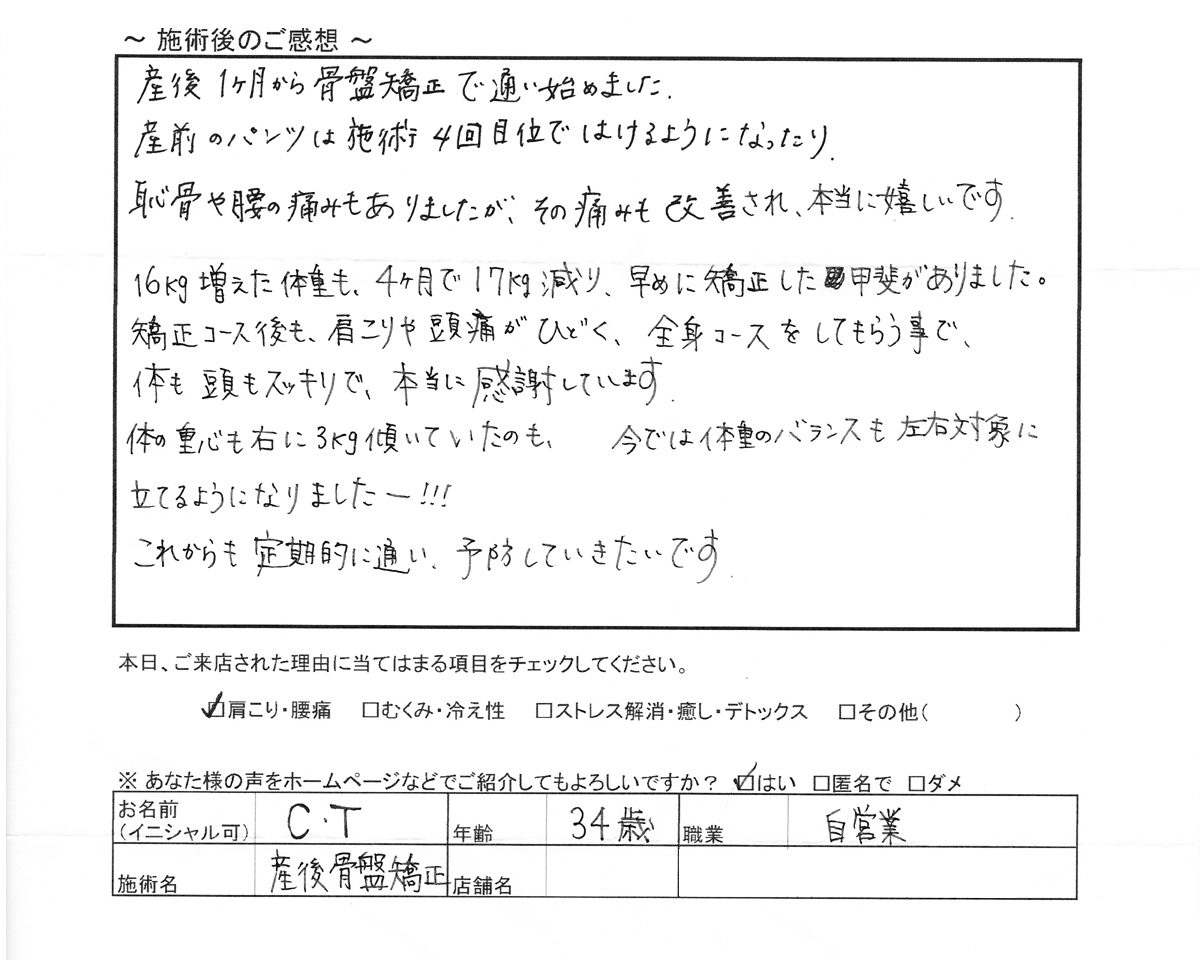 ～ 施術後のご感想 ～
産後1ヶ月から骨盤矯正で通い始めました.
産前のパンツは施術4回目位ではけるようになったり.
恥骨や腰の痛みもありましたが、その痛みも改善され、本当に嬉しいです.
16kg増えた体重も、4ヶ月で17kg減り、早めに矯正した甲斐がありました。
矯正コース後も、肩こりや頭痛がひどく、全身コースをしてもらう事で、
体も頭もスッキリで、本当に感謝しています.
体の重心も右に3kg傾いていたのも、 今では体重のバランスも左右対象に
立てるようになりましたー!!!
これからも定期的に通い、予防していきたいです.
本日、ご来店された理由に当てはまる項目をチェックしてください。
☑肩こり・腰痛 □むくみ・冷え性 □ストレス解消・癒し・デトックス □その他( )
※ あなた様の声をホームページなどでご紹介してもよろしいですか？ ☑はい □匿名で □ダメ
お名前
(イニシャル可) C・T 年齢 34歳 職業 自営業
施術名 産後骨盤矯正 店舗名